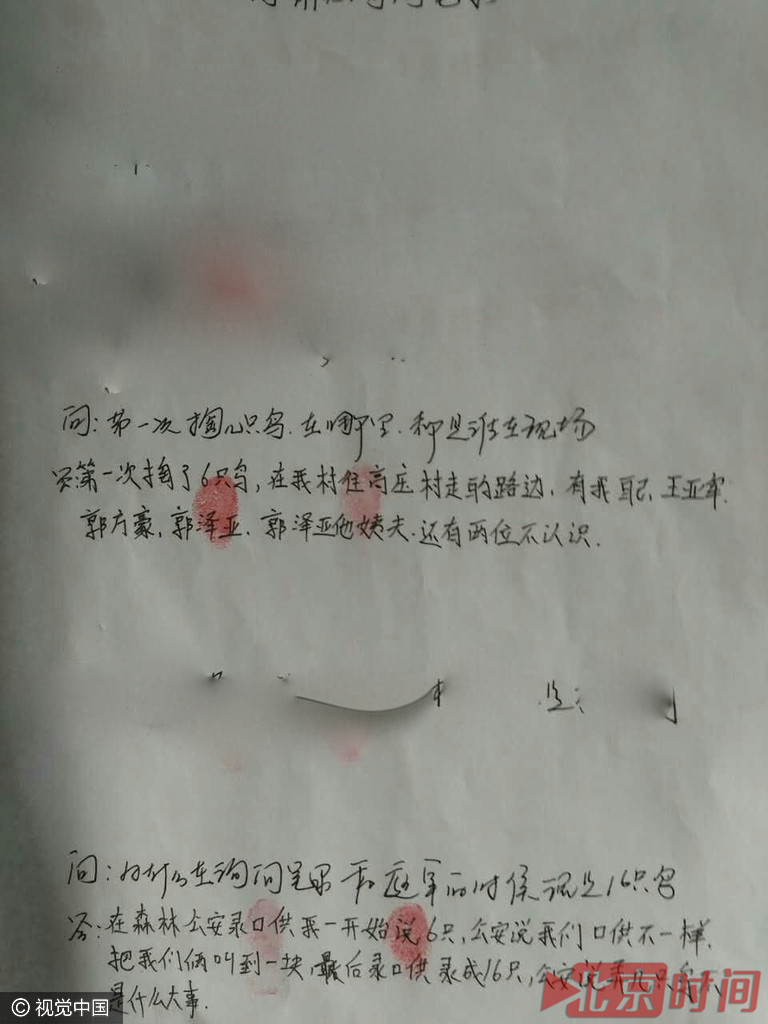 问:第一次掏几只鸟.在哪里.和是谁在现场
答第一次掏了6只鸟,在我村往高庄村走的路边.有我自己.王亚军.
郭方豪,郭泽亚.郭泽亚他姨夫.还有两位不认识.
是
问:为什么在询问笔录和庭审的时候说是16只鸟
答:在森林公安录口供我一开始说6只,公安说我们口供不一样.
把我们俩叫到一块,最后录口供录成16只,公安说弄几只鸟不
是什么大事.
北京时间
©视觉中国